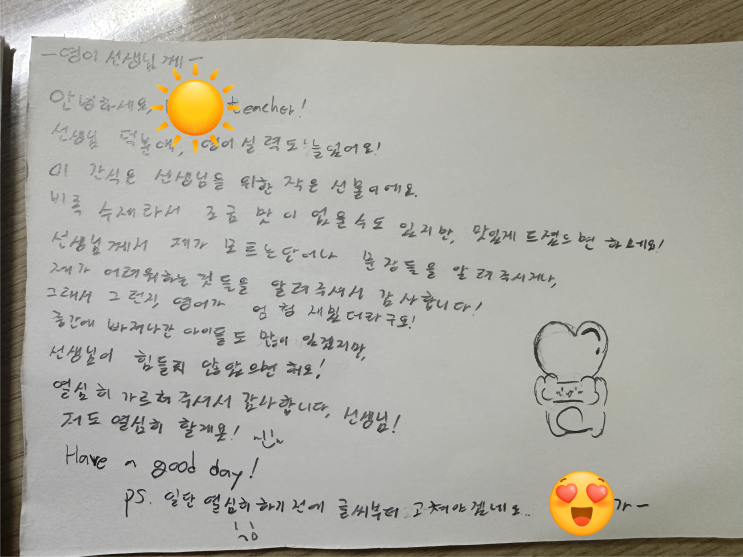 -영어 선생님께-
안녕하세요, teacher!
선생님 덕분에, 영어 실력도 늘덨어요!
이 간식은 선생님을 위한 작은 선물이에요.
비록 수제라서 조금 맛이 없을수도 있지만, 맛있게 드셨으면 하네요!
선생님께서 제가 모르는단어나 문장들을 알려주시거나,
제가 어려워하는 것들을 알려주셔서 감사합니다!
그래서 그런지, 영어가 엄청 재밌더라구요!
중간에 빠져나간 아이들도 많이 있겠지만,
선생님이 힘들지 않았으면 해요!
열심히 가르쳐주셔서 감사합니다, 선생님!
저도 열심히 할게요!
Have a good day!
ps. 일단 열심히하기전에 글씨부터 고쳐야겠네요..
가-